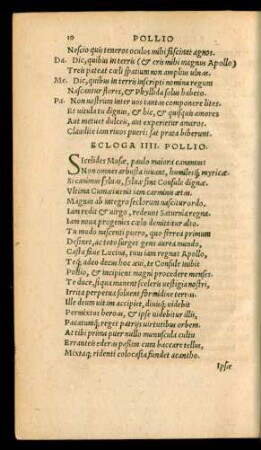 10 POLLIO
Nescio quis teneros oculos mihi fascinat agnos.
Da. Dic, quibus in terris (& eris mihi magnus Apollo)
Treis pateat cœli spatium non amplius ulnas.
Me. Dic, quibus in terris inscripti nomina regum
Nascantur flores, & Phyllida solus habeto.
Pa. Non nostrum inter uos tantas componere lites.
Et uitula tu dignus, & hic, & quisquis amores
Aut metuet dulceis, aut experietur amaros.
Claudite iam riuos pueri: sat prata biberunt.
ECLOGA IIII. POLLIO.
Sicelides Musæ, paulo maiora canamus
Non omnes arbusta iuuant, humilesq́; myricæ.
Si canimus syluas, syluæ sint Consule dignæ.
Vltima Cumæi uenit iam carminis ætas.
Magnus ab integro seclorum nascitur ordo.
Iam redit & uirgo, redeunt Saturnia regna.
Iam noua progenies cœlo demittitur alto.
Tu modo nascenti puero, quo ferrea primum
Desinet, ac toto surget gens aurea mundo,
Casta faue Lucina, tuus iam regnat Apollo,
Teq; adeo decus hoc æui, te Consule inibit
Pollio, & incipient magni procedere menses.
Te duce, siqua manent sceleris uestigia nostri,
Irrita perpetua soluent formidine terras.
Ille deum uitam accipiet, diuisq́; uidebit
Permixtos heroas, & ipse uidebitur illis,
Pacatumq́; reget patrijs uirtutibus orbem.
At tibi prima puer nullo munuscula cultu
Erranteis ederas passim cum baccare tellus,
Mixtaq; ridenti colocasia fundet acantho.
Ipsæ